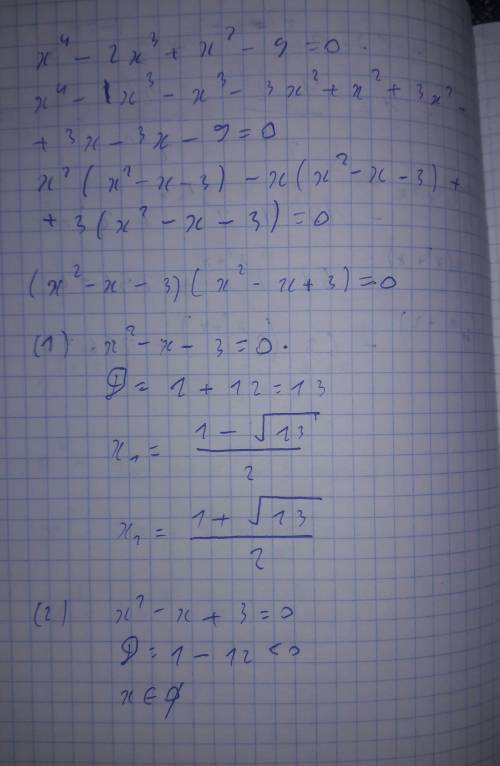 x⁴ - 2x³ + x² - 9 = 0.
x⁴ - 1x³ - x³ - 3x² + x² + 3x² -
+ 3x - 3x - 9 = 0
x² (x² - x - 3) - x (x² - x - 3) +
+ 3 (x² - x - 3) = 0
(x² - x - 3) (x² - x + 3) = 0
(1) . x² - x - 3 = 0 .
D = 1 + 12 = 13
x₁ = (1 - √13) / 2
x₂ = (1 + √13) / 2
(2) x² - x + 3 = 0
D = 1 - 12 < 0
x ∈ ∅